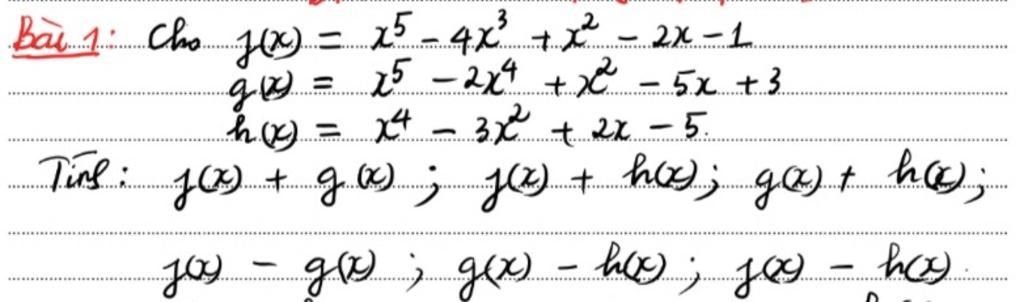 Bài 1: Cho f(x) = x⁵ - 4x³ + x² - 2x - 1
g(x) = x⁵ - 2x⁴ + x² - 5x + 3
h(x) = x⁴ - 3x² + 2x - 5.
Tính: f(x) + g(x) ; f(x) + h(x) ; g(x) + h(x) ;
f(x) - g(x) ; g(x) - h(x) ; f(x) - h(x).